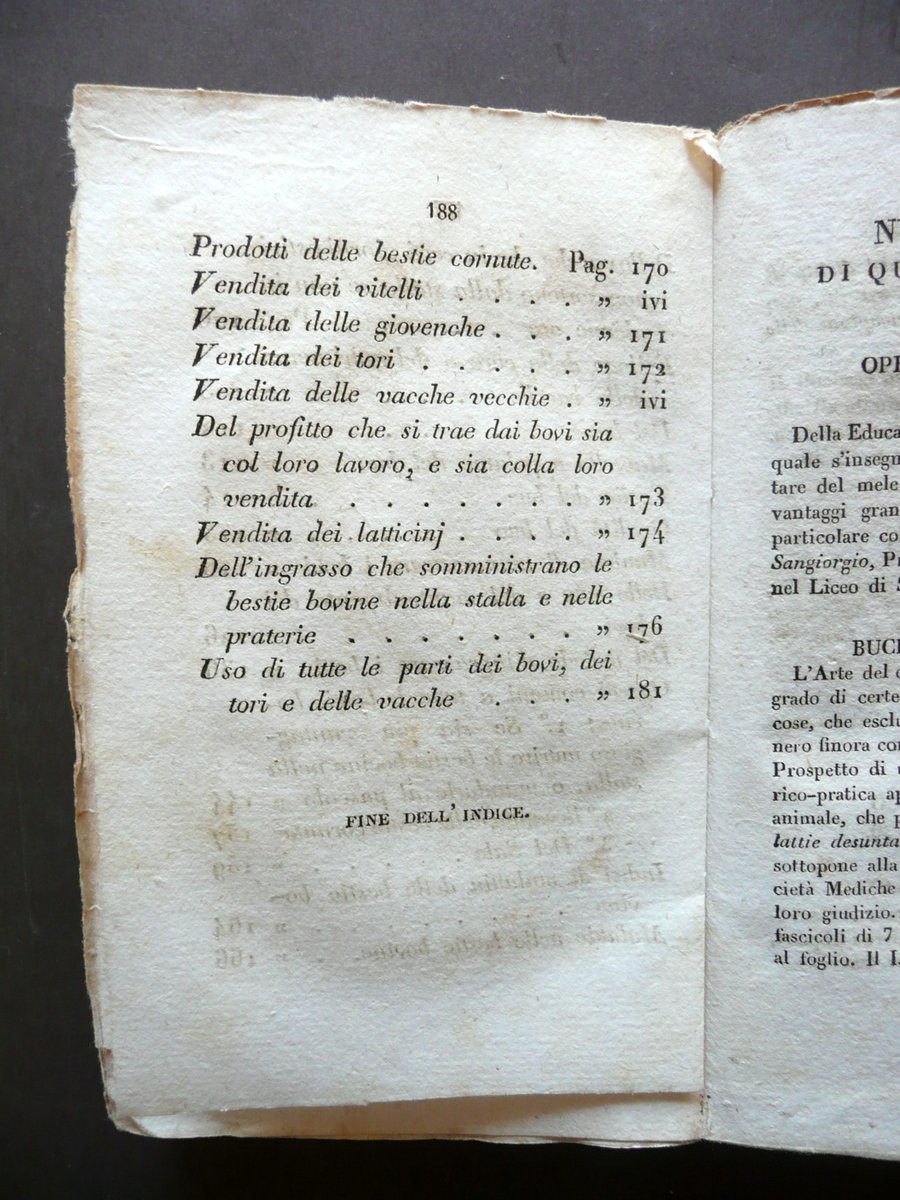 188
Prodotti delle bestie cornute. Pag. 170
Vendita dei vitelli . . . . „ ivi
Vendita delle giovenche . . . „ 171
Vendita dei tori . . . . . „ 172
Vendita delle vacche vecchie . „ ivi
Del profitto che si trae dai bovi sia
col loro lavoro, e sia colla loro
vendita . . . . . . „ 173
Vendita dei latticinj . . . . „ 174
Dell'ingrasso che somministrano le
bestie bovine nella stalla e nelle
praterie . . . . . . . „ 176
Uso di tutte le parti dei bovi, dei
tori e delle vacche . . . „ 181
FINE DELL'INDICE.
DI QU
OPE
Della Educa
quale s'insegn
tare del mele
vantaggi gran
particolare co
Sangiorgio, Pr
nel Liceo di
BUCH
L'Arte del
grado di certe
cose, che esclu
nero finora co
Prospetto di
rico-pratica ap
animale, che p
lattie desunta
sottopone alla
cietà Mediche
loro giudizio.
fascicoli di 7
al foglio. Il